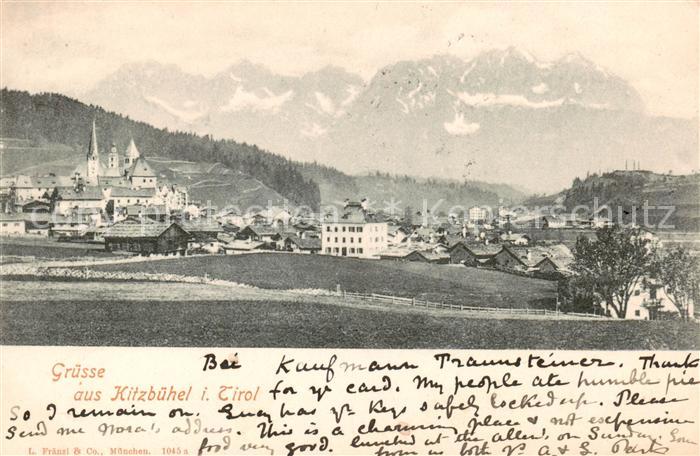 Bei Kaufmann Traunsteiner. Thank
Grüsse
aus Kitzbühel i. Tirol
for yr card. My people ate humble pie
So I remain on. Lucy has yr Keys safely locked up. Please
Send me Nora's address. This is a charming place & not expensive
food very good. lunched at the Allens, on Sunday.
from us both yr A. & L. Parks
L. Fränzl & Co., München. 1045 a